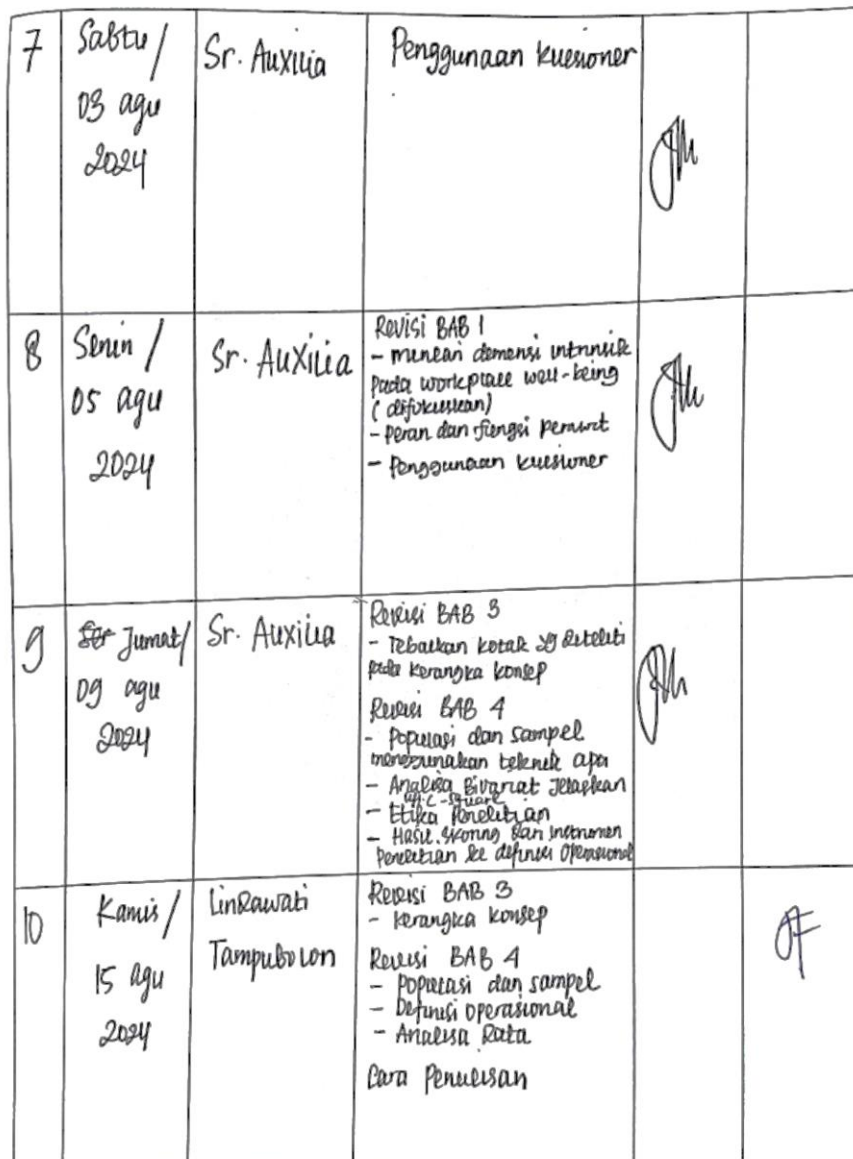 7
Sabtu /
03 agu
2024
Sr. Auxilia
Penggunaan kuesioner
8
Senin /
05 agu
2024
Sr. Auxilia
Revisi BAB 1
- mencari demensi intrinsik
pada workplace well-being
(difokuskan)
- Peran dan fungsi perawat
- Penggunaan kuesioner
9
Jumat/
09 agu
2024
Sr. Auxilia
Revisi BAB 3
- Tebalkan kotak yg diteliti
pada kerangka konsep
Revisi BAB 4
- Populasi dan sampel
menggunakan teknik apa
- Analisa Bivariat Jelaskan
C-square
- Etika Penelitian
- Hasil skoring dan instrumen
penelitian ke definisi Operasional
10
Kamis /
15 agu
2024
LinDawati
Tampubolon
Revisi BAB 3
- kerangka konsep
Revisi BAB 4
- Populasi dan sampel
- Definisi operasional
- Analisa Data
Cara Penulisan